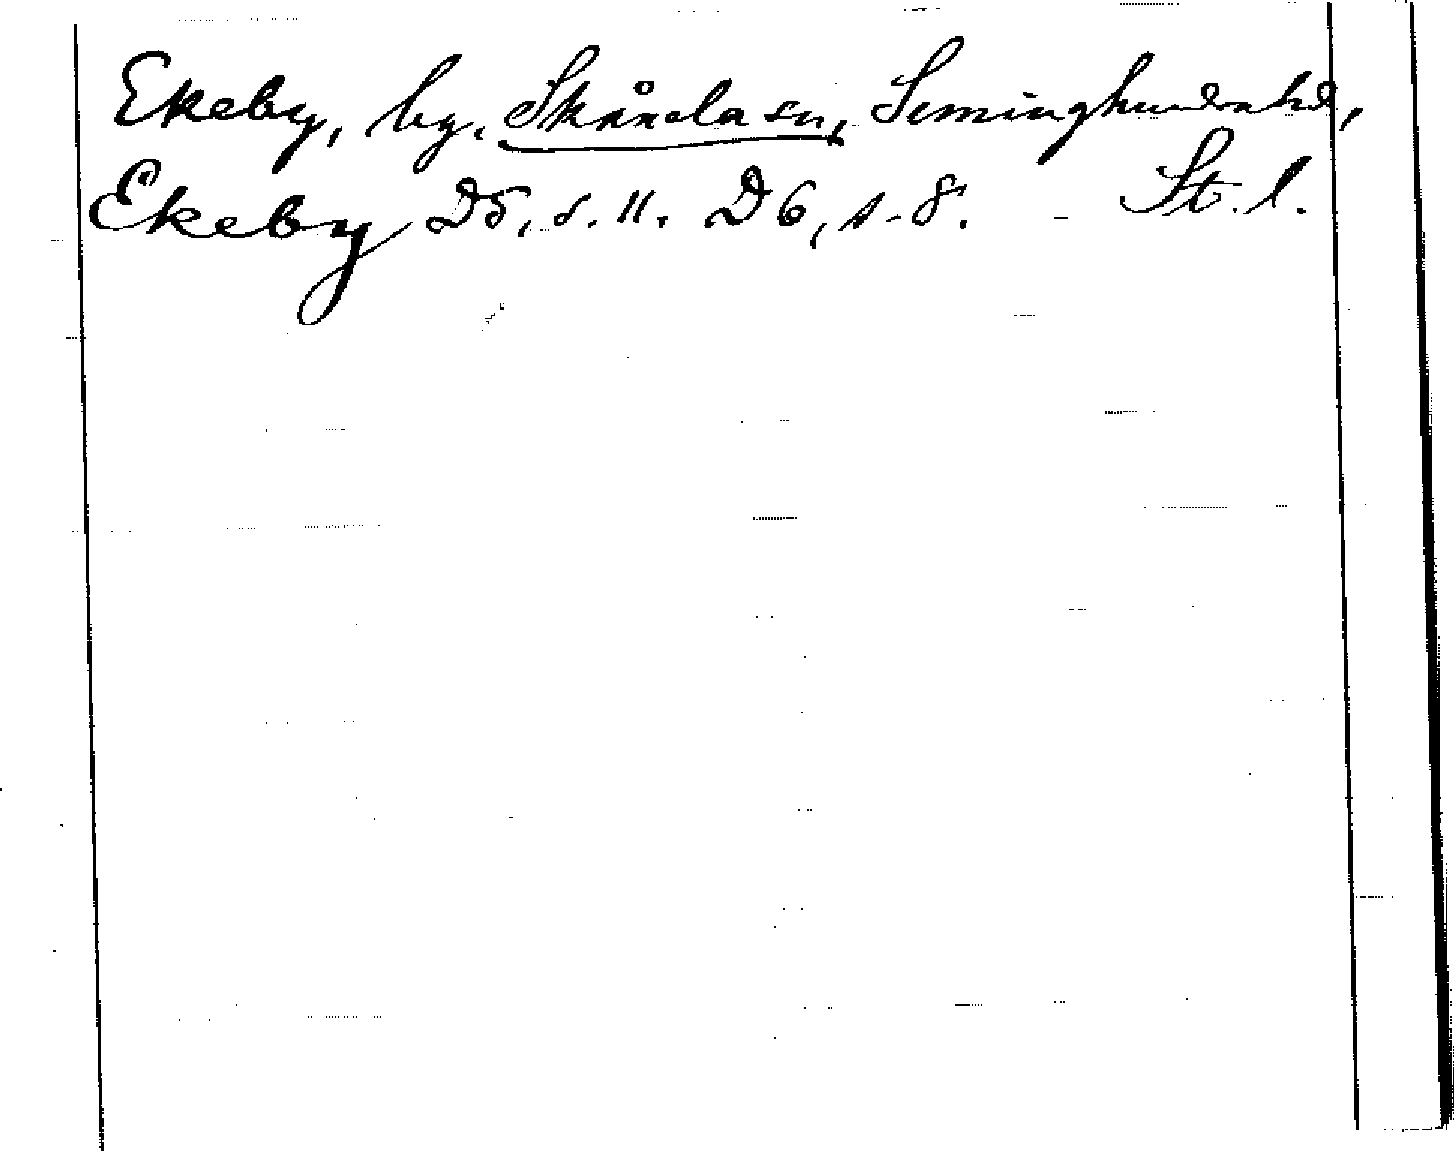 Ekeby, by, Skånela sn, Seminghundra hd,
Ekeby D5, s. 11. D6, s. 8. St. l.